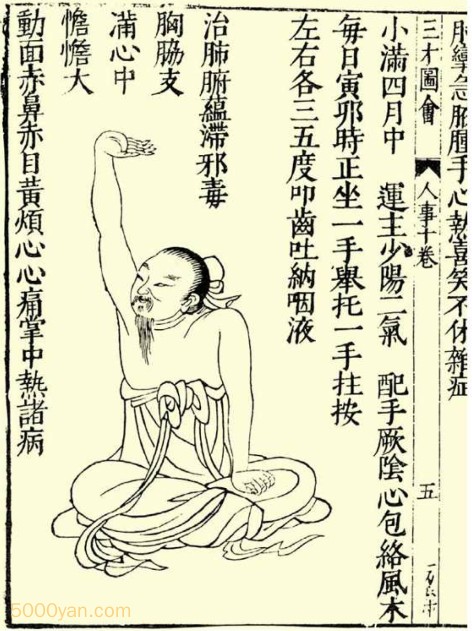 肘攣急腋腫手心熱喜笑不休雜症
三才圖會 人事十卷 五
小滿四月中 運主少陽二氣 配手厥陰心包絡風木
每日寅卯時正坐一手舉托一手拄按
左右各三五度叩齒吐納咽液
治肺腑蘊滯邪毒
胸脇支
滿心中
憺憺大
動面赤鼻赤目黃煩心心痛掌中熱諸病
5000yan.com